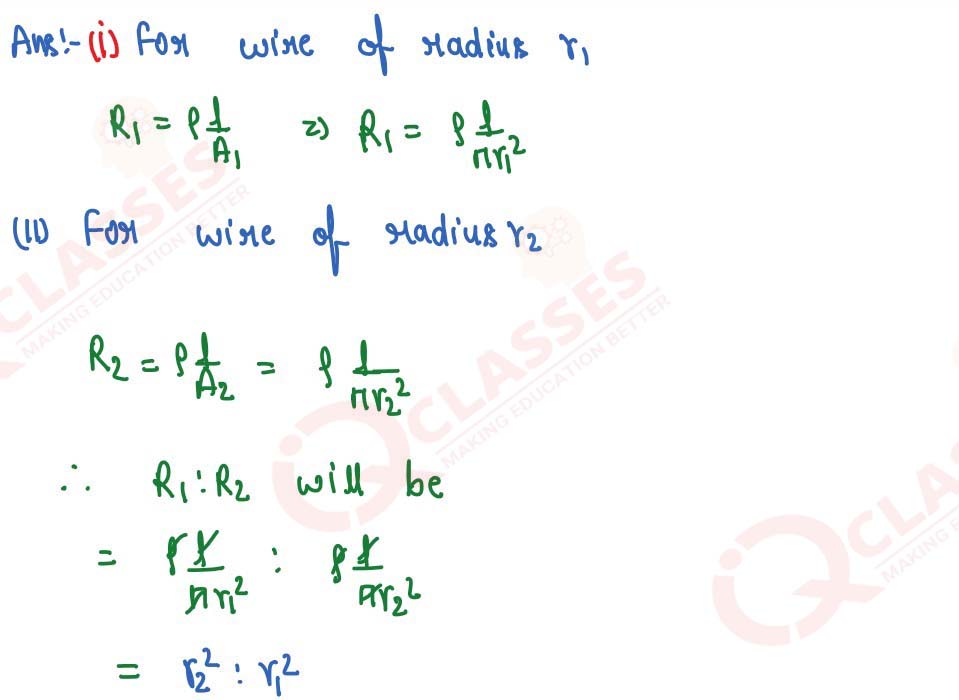 Ans:- (i) For wire of radius r₁
R₁ = ρ l/A₁ ⇒ R₁ = ρ l/πr₁²
(II) For wire of radius r₂
R₂ = ρ l/A₂ = ρ l/πr₂²
∴ R₁ : R₂ will be
= ρ l/πr₁² : ρ l/πr₂²
= r₂² : r₁²
IQ CLASSES
MAKING EDUCATION BETTER
IQ CLASSES
MAKING EDUCATION BETTER
IQ CLASSES
MAKING EDUCATION BETTER